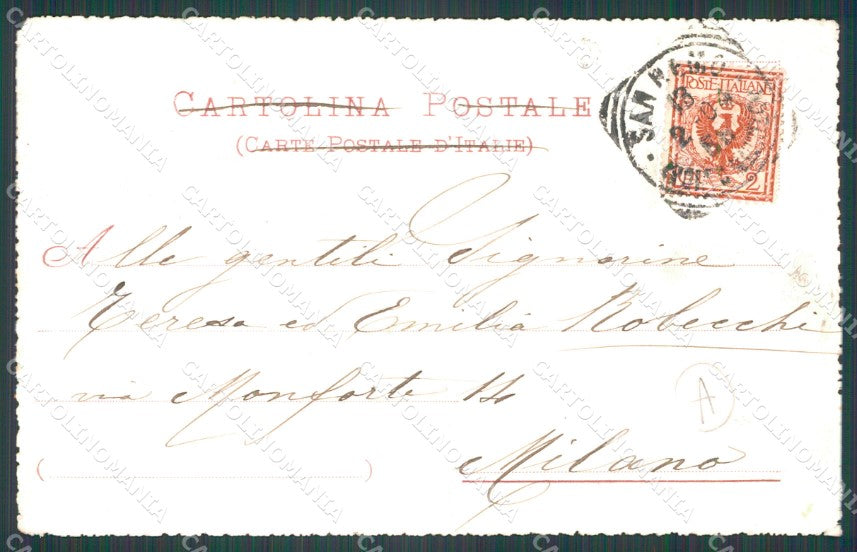 CARTOLINA POSTALE
(CARTE POSTALE D'ITALIE)
POSTE ITALIANE
2
SAN REMO
13
2
Alle gentili Signorine
Teresa ed Emilia Robecchi
via Monforte 14
Milano
( )
A
CARTOLINOMANIA